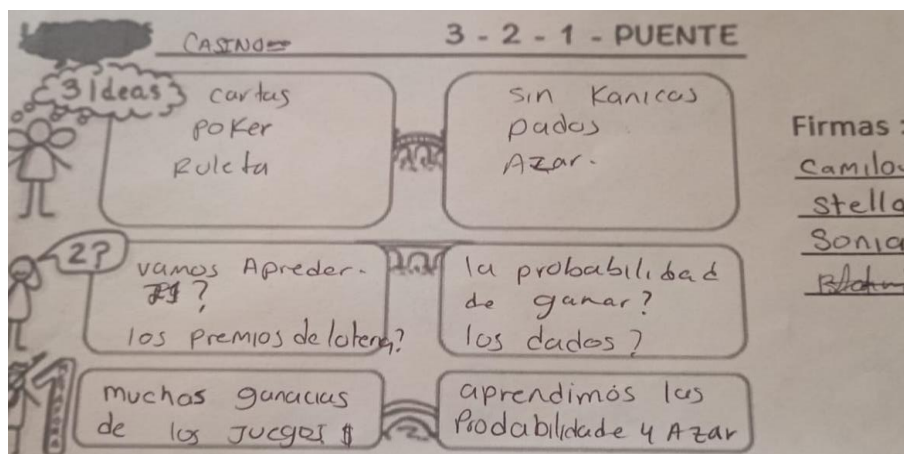 CASINO
3 - 2 - 1 - PUENTE
3 Ideas
cartas
POKER
Ruleta
Sin Kanicas
Dados
Azar.
Firmas :
Camilo
Stella
Sonia
2?
vamos Apreder.
?
los premios de loteria?
la probabilidad
de ganar?
los dados?
1
muchas ganacias
de los Juegos $
aprendimos las
Prodabilidade y Azar